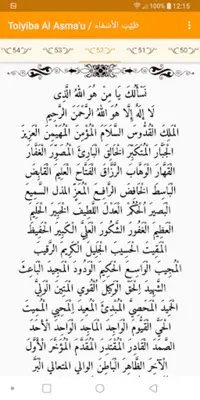 12:15
Toiyiba Al Asma'u / طيّب الأسماء
"54" "53" "52" "51" "50"
نَسْأَلُكَ يَا مَنْ هُوَ اللهُ الَّذِى
لَا إِلَهَ إِلَّا هُوَ اللهُ الرَّحْمَنُ الرَّحِيمُ
الْمَلِكُ الْقُدُّوسُ السَّلَامُ الْمُؤْمِنُ الْمُهَيْمِنُ الْعَزِيزُ
الْجَبَّارُ الْمُتَكَبِّرُ الْخَالِقُ الْبَارِئُ الْمُصَوِّرُ الْغَفَّارُ
الْقَهَّارُ الْوَهَّابُ الرَّزَّاقُ الْفَتَّاحُ الْعَلِيمُ الْقَابِضُ
الْبَاسِطُ الْخَافِضُ الرَّافِعُ الْمُعِزُّ الْمُذِلُّ السَّمِيعُ
الْبَصِيرُ الْحَكَمُ الْعَدْلُ اللَّطِيفُ الْخَبِيرُ الْحَلِيمُ
الْعَظِيمُ الْغَفُورُ الشَّكُورُ الْعَلِيُّ الْكَبِيرُ الْحَفِيظُ
الْمُقِيتُ الْحَسِيبُ الْجَلِيلُ الْكَرِيمُ الرَّقِيبُ
الْمُجِيبُ الْوَاسِعُ الْحَكِيمُ الْوَدُودُ الْمَجِيدُ الْبَاعِثُ
الشَّهِيدُ الْحَقُّ الْوَكِيلُ الْقَوِيُّ الْمَتِينُ الْوَلِيُّ
الْحَمِيدُ الْمُحْصِي الْمُبْدِئُ الْمُعِيدُ الْمُحْيِي الْمُمِيتُ
الْحَيُّ الْقَيُّومُ الْوَاجِدُ الْمَاجِدُ الْوَاحِدُ الْأَحَدُ
الصَّمَدُ الْقَادِرُ الْمُقْتَدِرُ الْمُقَدِّمُ الْمُؤَخِّرُ الْأَوَّلُ
الْآخِرُ الظَّاهِرُ الْبَاطِنُ الْوَالِي الْمُتَعَالِي الْبَرُّ